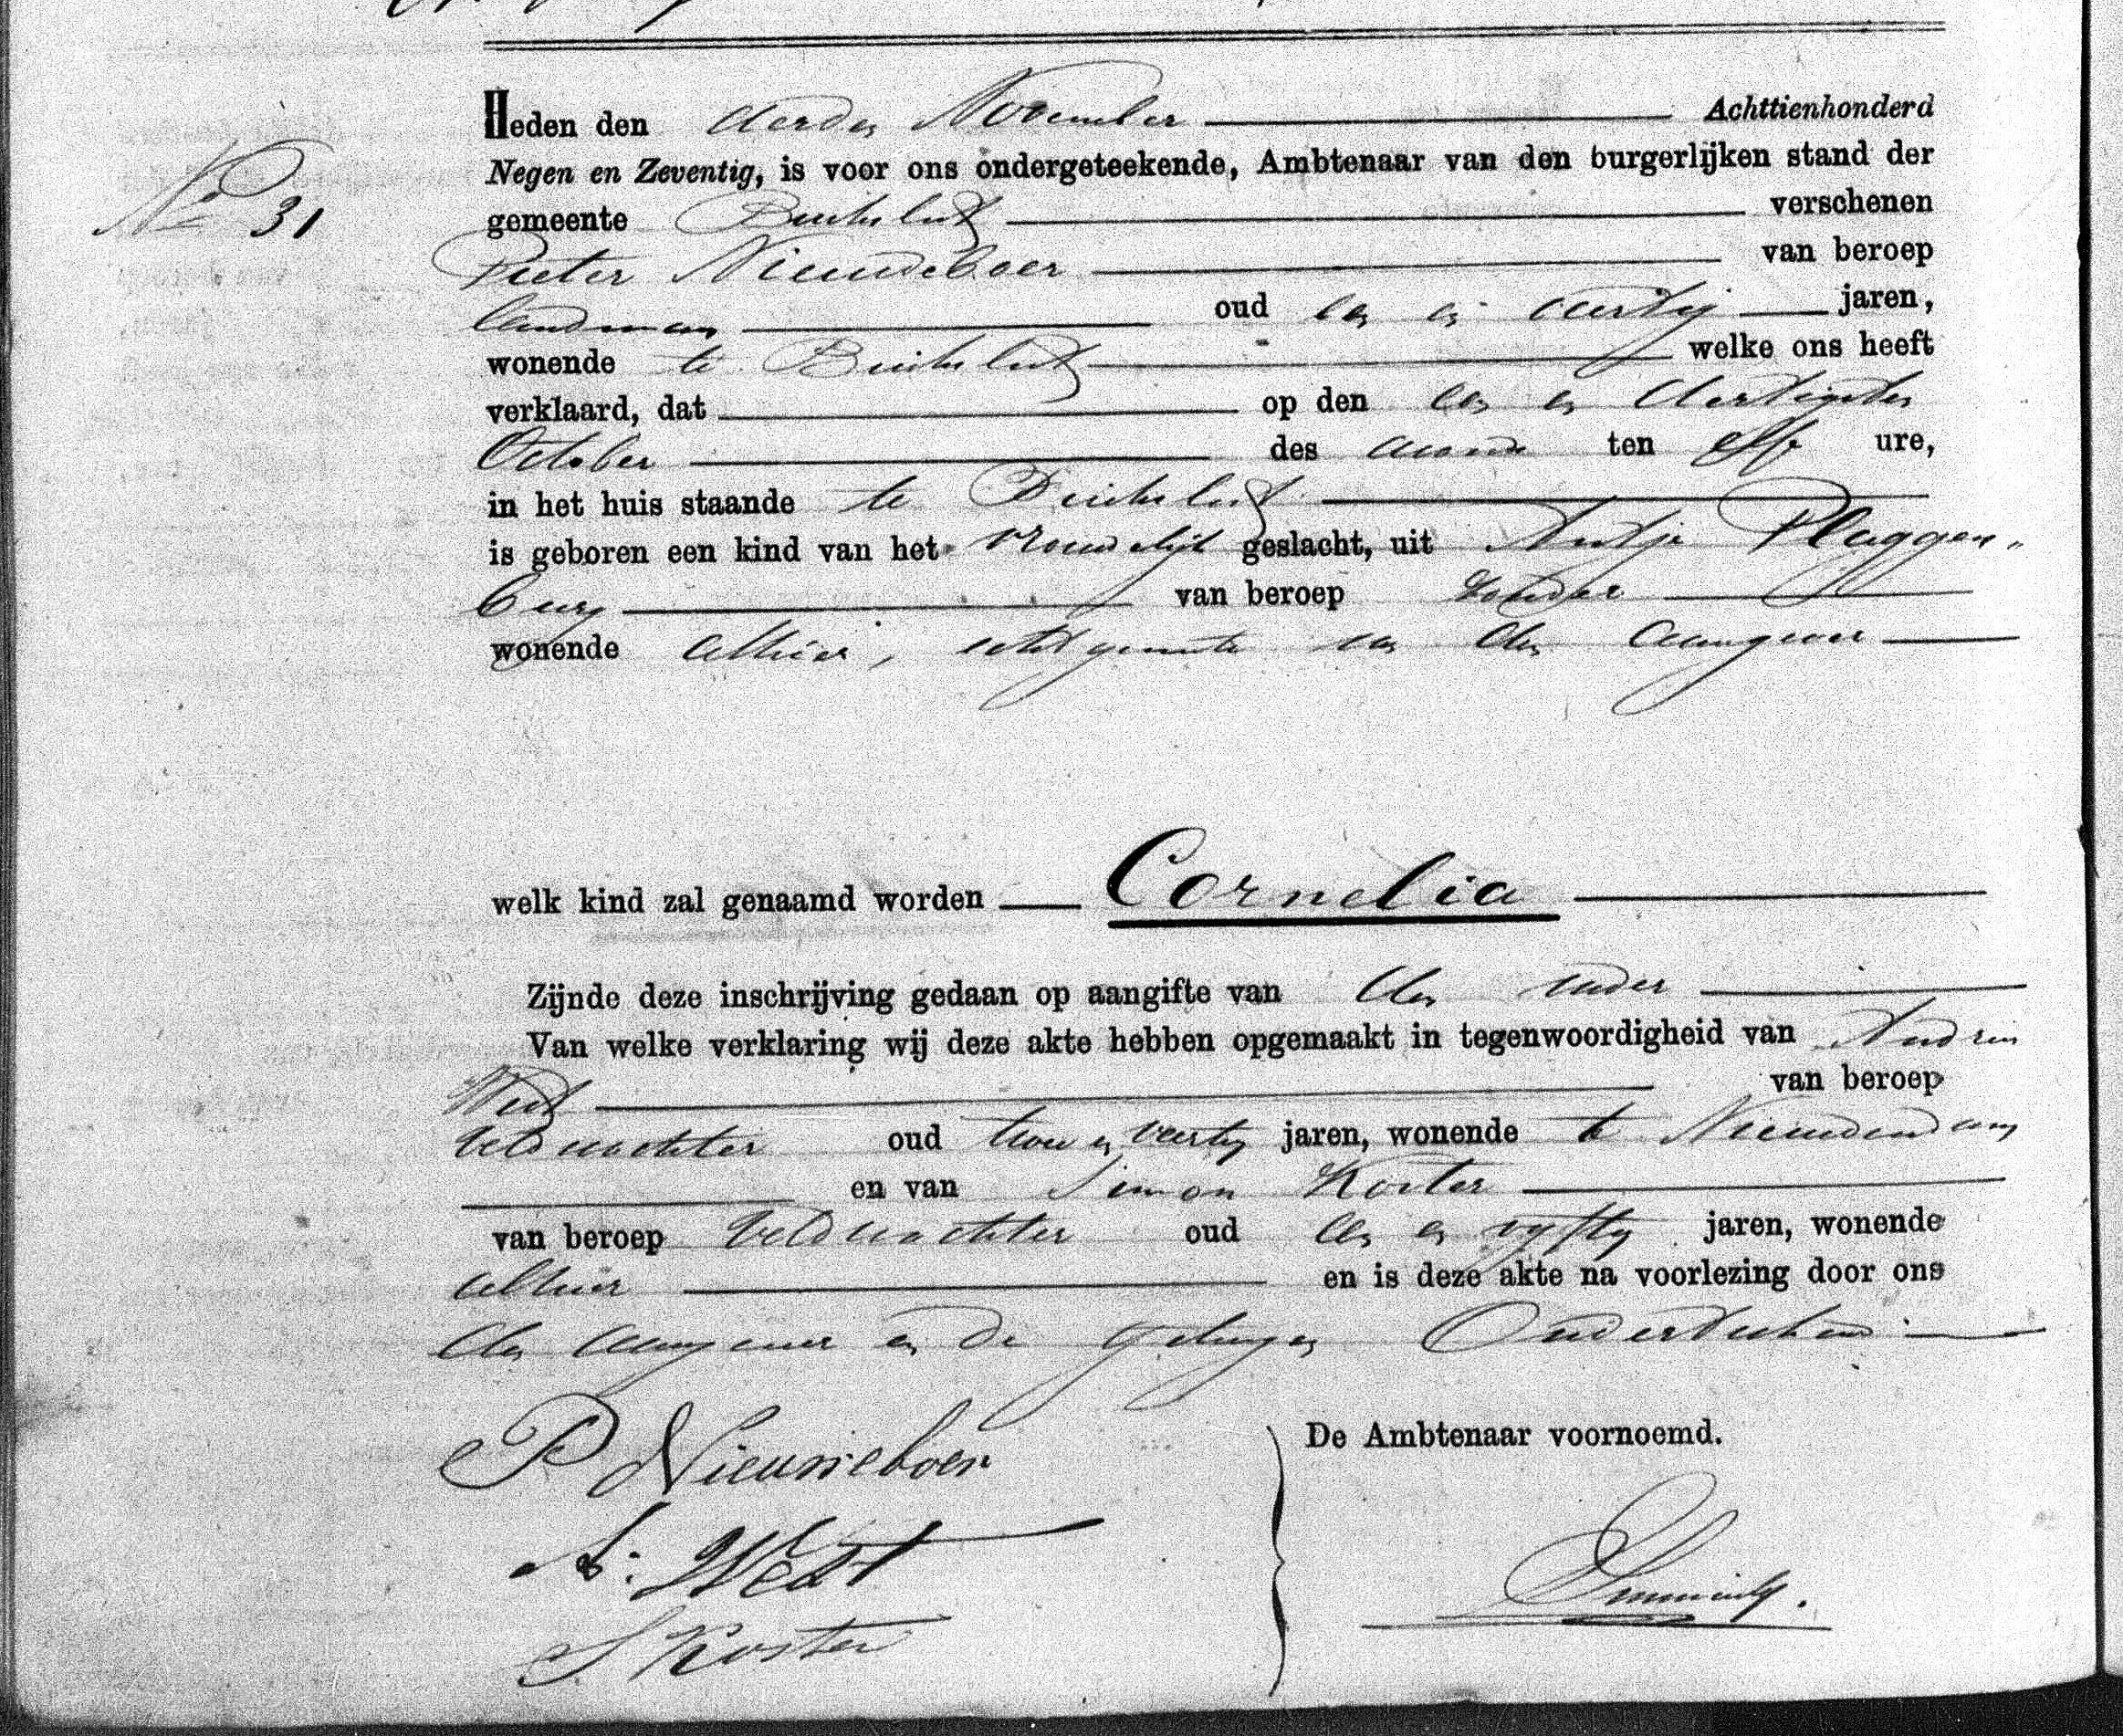 No 31
Heden den derden November Achttienhonderd
Negen en Zeventig, is voor ons ondergeteekende, Ambtenaar van den burgerlijken stand der
gemeente Buiksloot verschenen
Pieter Nieuweboer van beroep
landman oud een en veertig jaren,
wonende te Buiksloot welke ons heeft
verklaard, dat op den een en dertigsten
October des avonds ten elf ure,
in het huis staande te Buiksloot
is geboren een kind van het vrouwelijk geslacht, uit Antje Pluggen„
burg van beroep zonder
wonende alhier, echtgenoote van den aangever
welk kind zal genaamd worden Cornelia
Zijnde deze inschrijving gedaan op aangifte van den vader
Van welke verklaring wij deze akte hebben opgemaakt in tegenwoordigheid van
West van beroep
veldwachter oud twee en veertig jaren, wonende te Nieuwendam
en van Simon Koster
van beroep veldwachter oud een en vyftig jaren, wonende
alhier en is deze akte na voorlezing door ons
den aangever en de getuigen onderteekend
P Nieuweboer
De Ambtenaar voornoemd.
A: West
S Koster